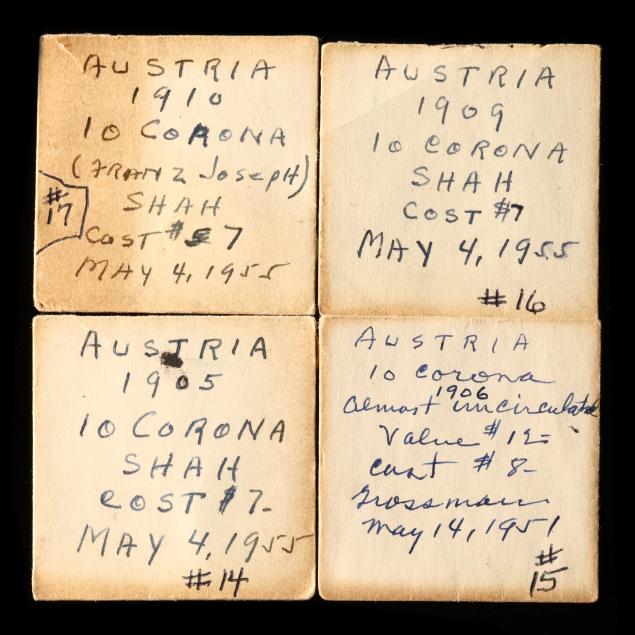 AUSTRIA
1910
10 CORONA
(FRANZ Joseph)
SHAH
#17
COST $7
MAY 4, 1955
AUSTRIA
1909
10 CORONA
SHAH
COST $7
MAY 4, 1955
#16
AUSTRIA
1905
10 CORONA
SHAH
COST $7-
MAY 4, 1955
#14
AUSTRIA
10 corona
1906
almost uncirculated
Value $12=
cost $8-
Grossman
May 14, 1951
#
15